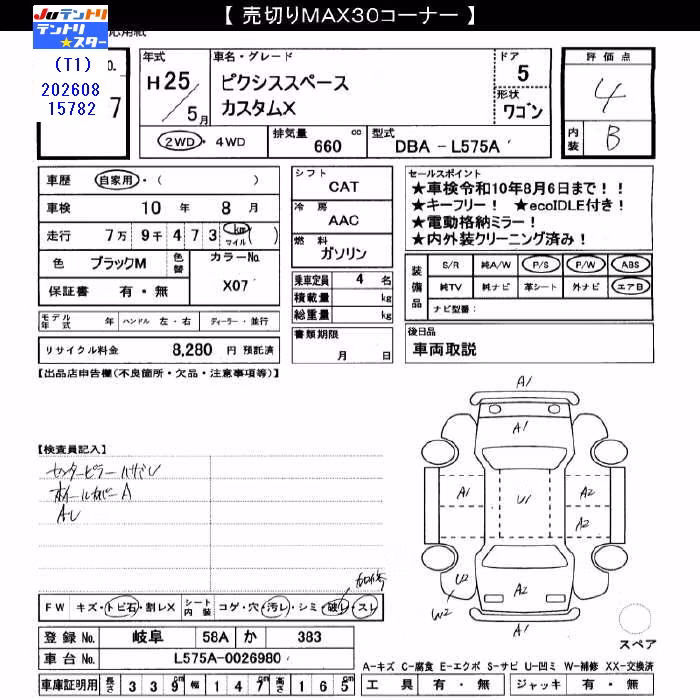 【 売切りMAX30コーナー 】
JUテントリ
テントリ★スター
(T1)
202608
15782
年式
H25/5月
車名・グレード
ピクシススペース
カスタムX
ドア
5
形状
ワゴン
評価点
4
内装
B
2WD・4WD
排気量
660 cc
型式
DBA - L575A
車歴 自家用・( )
車検 10 年 8 月
走行 7万 9千 4 7 3 km マイル ( )
色 ブラックM 色替 カラーNo. X07
保証書 有・無
モデル年式 年 ハンドル 左・右 ディーラー・並行
リサイクル料金 8,280 円 預託済
シフト
CAT
冷房
AAC
燃料
ガソリン
乗車定員 4 名
積載量 kg
総重量 kg
書類期限
月 日
セールスポイント
★車検令和10年8月6日まで！！
★キーフリー！ ★ecoIDLE付き！
★電動格納ミラー！
★内外装クリーニング済み！
装備品
S/R 純A/W P/S P/W ABS
純TV 純ナビ 革シート 外ナビ エアB
ナビ型番：
後日品
車両取説
【出品店申告欄(不良箇所・欠品・注意事項等)】
【検査員記入】
センターピラーハガレ
ホイールカバーA
AU
A1
A1
A1
U1
A2
A2
A2
U2
W2
A1
スペア
FW キズ・トビ石・割レX シート内装 コゲ・穴・汚レ・シミ・破レ・スレ
登録 No. 岐阜 58A か 383
車台 No. L575A-0026980
車庫証明用 長さ 3 3 9 cm 幅 1 4 7 cm 高さ 1 6 5 cm
A-キズ C-腐食 E-エクボ S-サビ U-凹ミ W-補修 XX-交換済
工具 有・無 ジャッキ 有・無